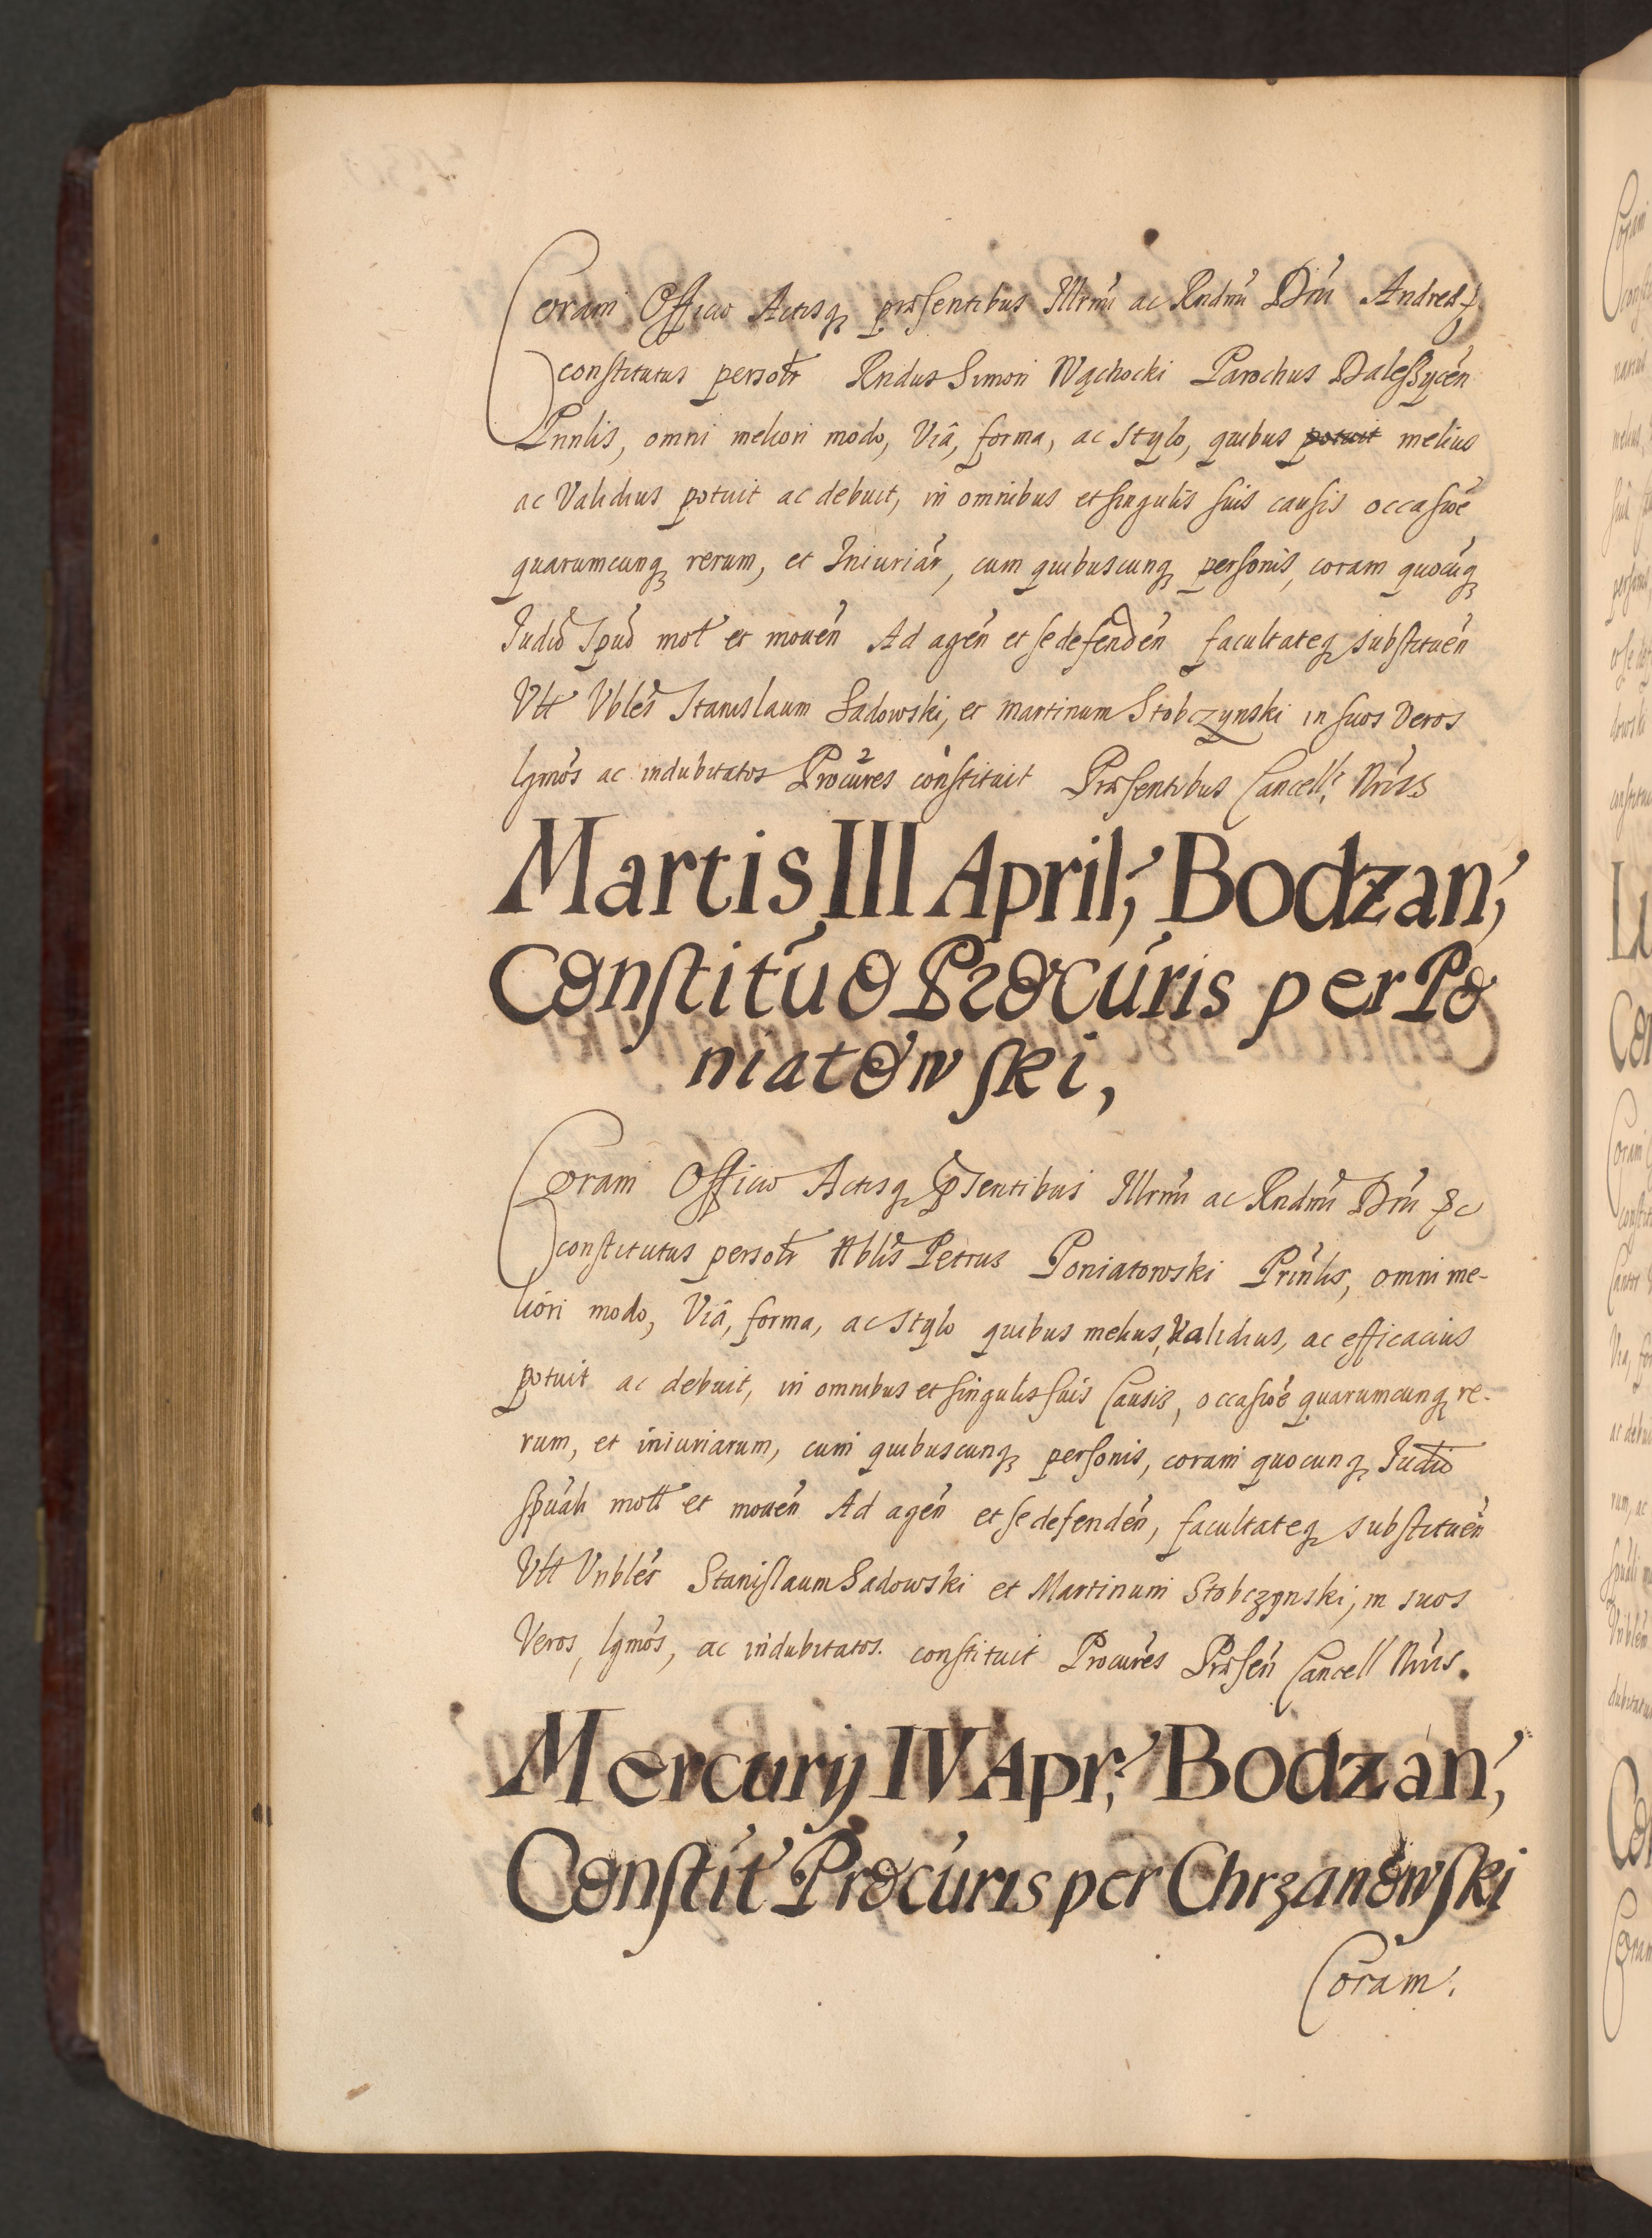 Coram Officio Actisq, præsentibus Illrmi ac Rndmi Dni Andreæ
constitutus persolr Rndus Simon Wąchocki Parochus Daleszycen
Pnnlis, omni meliori modo, Viâ, forma, ac stylo, quibus potuit melius
ac Validius potuit ac debuit, in omnibus et singulis suis causis occasioe
quarumcunq, rerum, et Iniuriar, cum quibuscunq, personis, coram quocuq
Iudio Spuo mot et mouen Ad agen et se defenden facultateq substituen
Vtt Vbles Stanislaum Sadowski, et martinum Stobczynski in suos Veros
lgmos ac indubitatos Procures constituit Præsentibus Cancell: Nriss
Martis III April; Bodzan;
Constituo Procuris per Po
niatowski,
Coram Officio Actisq psentibus Illrmi ac Rndmi Dni &c
constitutus persolr Nblis Petrus Poniatowski Prinlis, omni me-
liori modo, Viâ, forma, ac stylo quibus melius, Validius, ac efficacius
potuit ac debuit, in omnibus et singulis suis Causis, occasioe quarumcunq, re-
rum, et iniuriarum, cum quibuscunq, personis, coram quocunq, Iudio
spuali mott et mouen Ad agen et se defenden, facultateq substituen
Vtt Vnbles Stanislaum Sadowski et Martinum Stobczynski, in suos
Veros, lgmos, ac indubitatos. constituit Procures Præsen Cancell Nriis.
Mercurij IV Apr: Bodzan;
Constit Procuris per Chrzanowski
Coram.